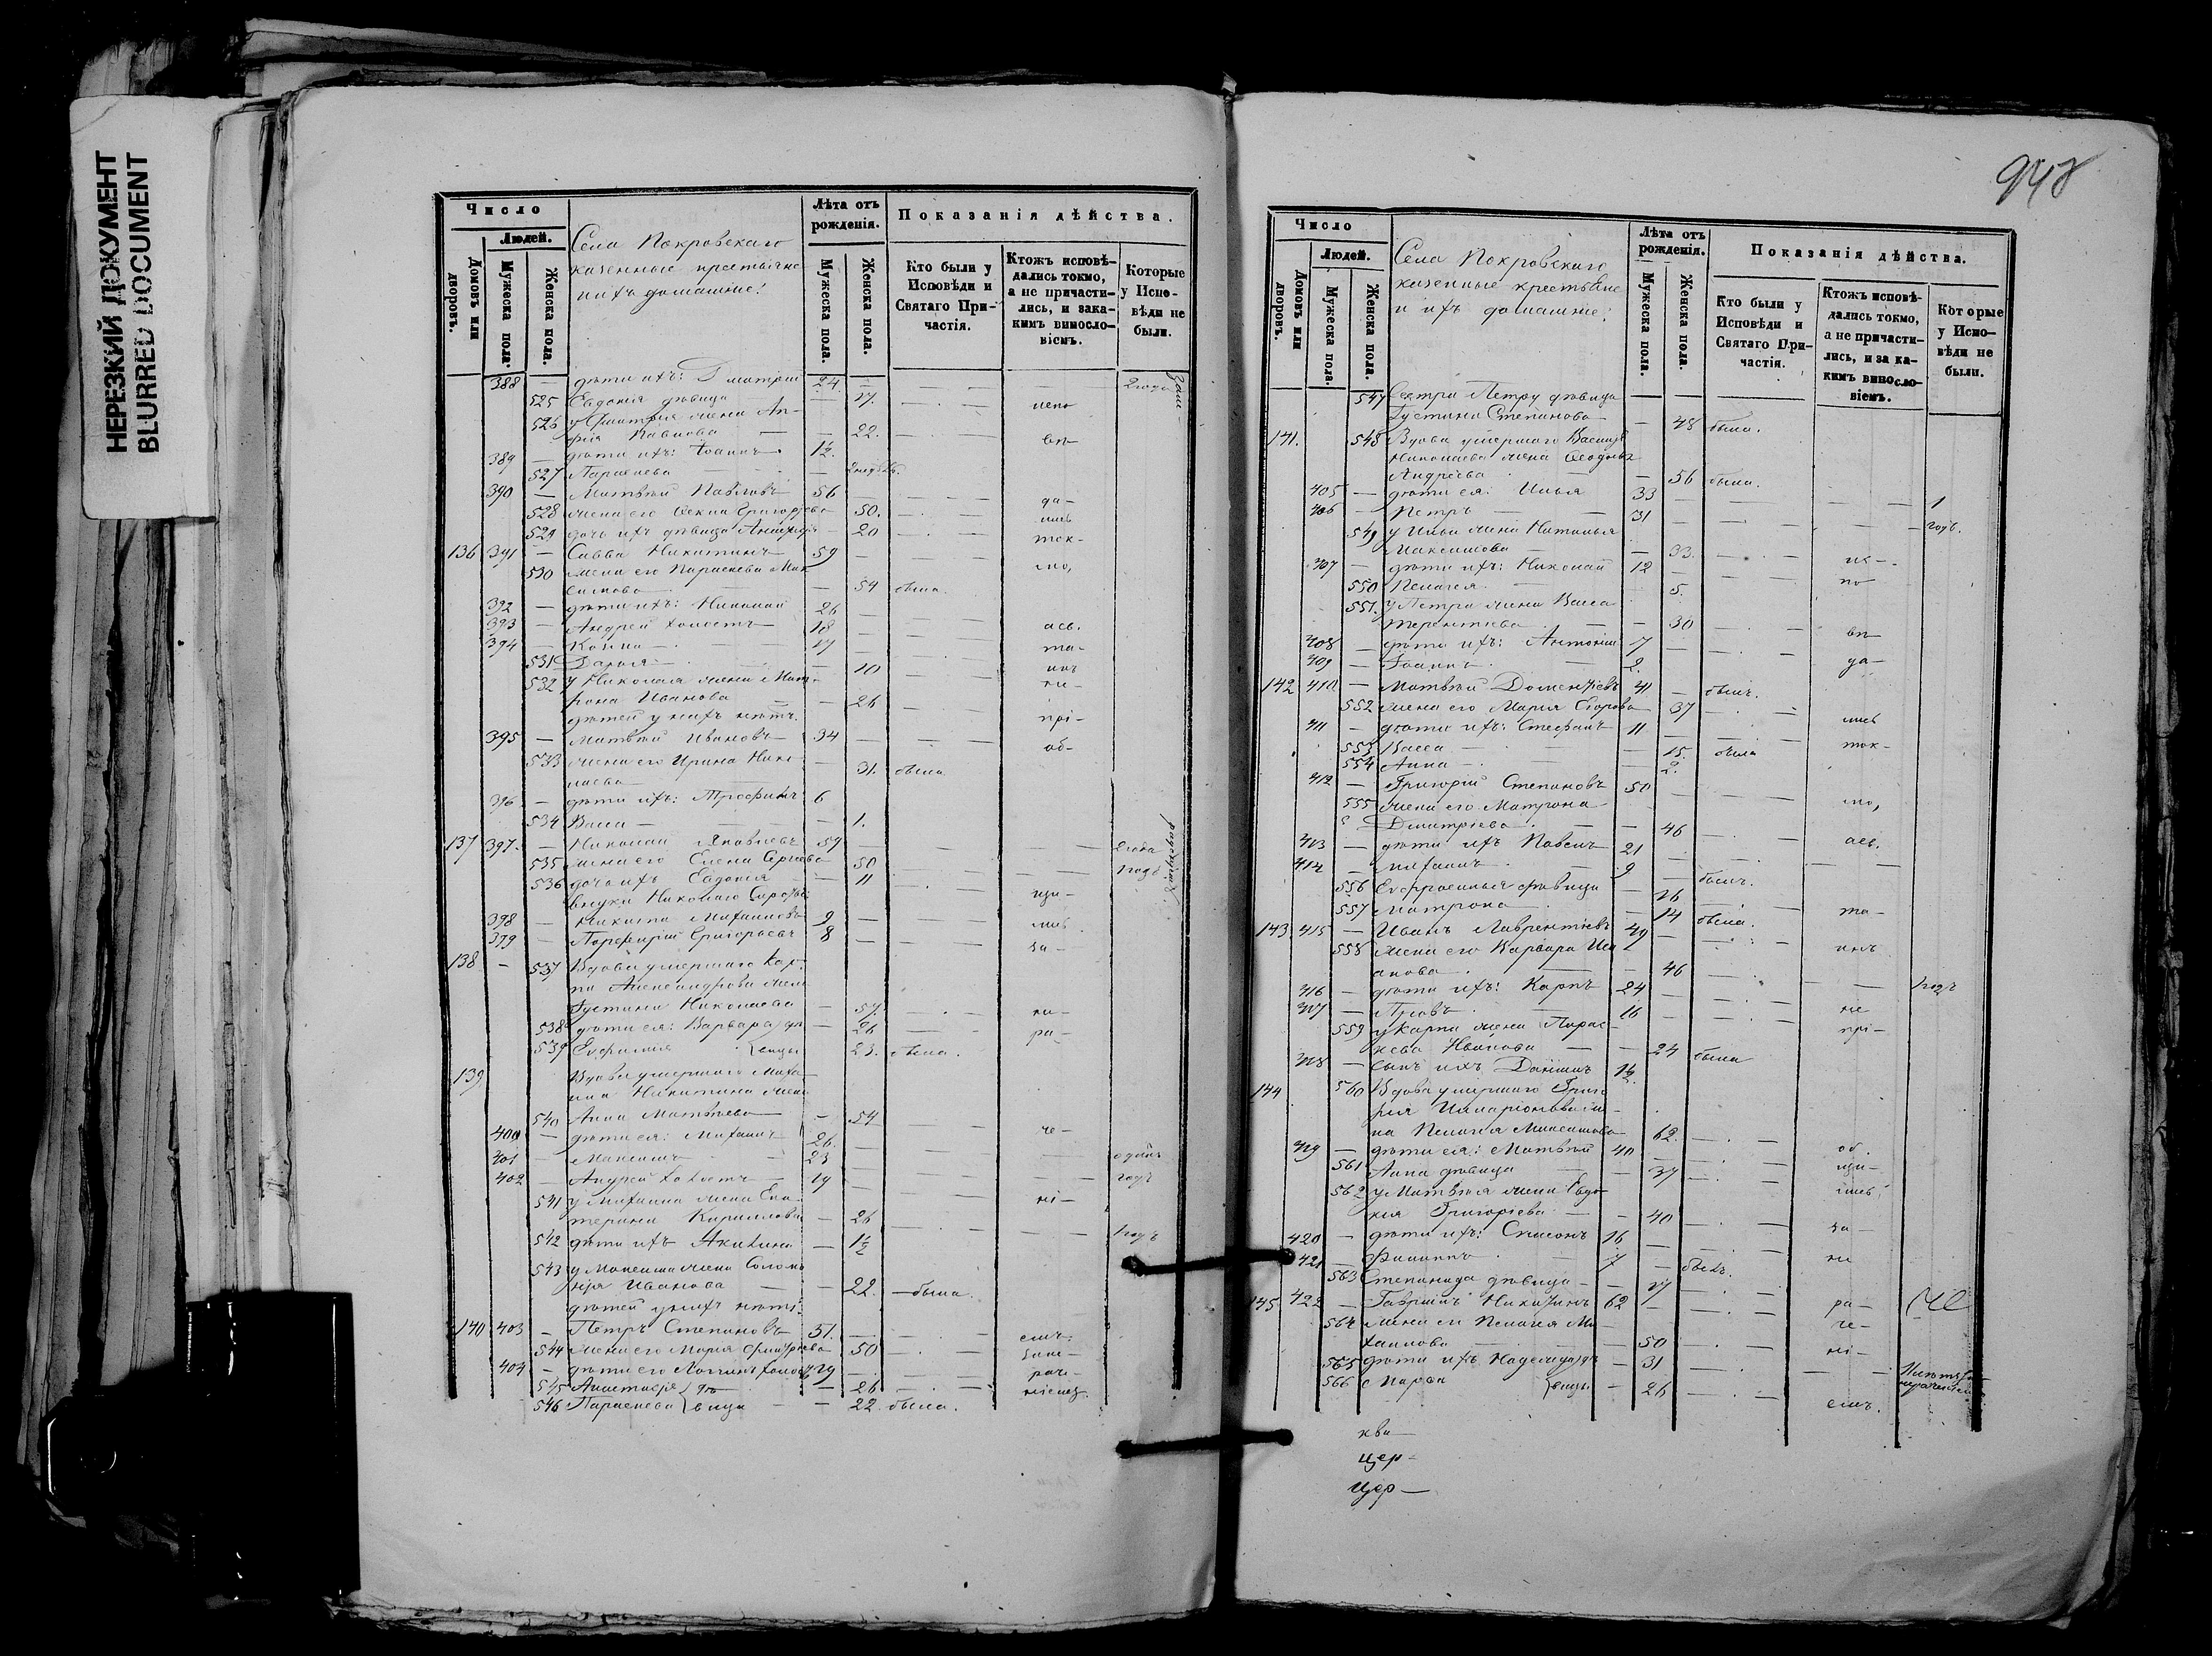 НЕРЕЗКИЙ ДОКУМЕНТ
BLURRED DOCUMENT
Число
Людей.
Домовъ или дворовъ.
Мужеска пола.
Женска пола.
Села Покровскаго
казенные крестьяне
и ихъ домашніе:
Лѣта отъ рожденія.
Мужеска пола.
Женска пола.
Показанія дѣйства.
Кто были у Исповѣди и Святаго Причастія.
Ктожъ исповѣдались токмо, а не причастились, и за какимъ винословіемъ.
Которые у Исповѣди не были.
388 — дѣти ихъ: Дмитрій 24. — 2 года
525 Евдокія дѣвица 17.
526 у Дмитрія жена Ап-
фія Павлова — — 22.
389 — дѣти ихъ: Іоаннъ 1½.
527 Параскева —
390 — Матвѣй Павловъ 56 — да-
528 жена его Ѳекла Григорьева 50.
529 дочь ихъ дѣвица 20 ток-
136 391 — Савва Никитинъ 59 — мо,
530 жена его Параскева Мак-
симова — 54 была.
392 — дѣти ихъ: Николай 26
393 — Андрей холостъ 18
394 — Козма — 17
531 Дарья — 10
532 у Николая жена Мат-
рона Иванова — 26
дѣтей у нихъ нѣтъ.
395 — Матвѣй Ивановъ 34 об-
533 жена его Ирина Нико-
лаева — 31. была
396 — дѣти ихъ: Трофимъ 6
534 Васса — — 1.
137 397. — Николай Яковлевъ 59 2 года
535 жена его Елена 50 1 годъ
536 дочь ихъ Евдокія — 11
внуки Николаю
398 — Никита Михайловъ 9
399 — Порфирій Григорьевъ 8 за-
138 — 537 Вдова умершаго Кар-
па Александрова жена
Іустина Николаева — 57.
538 дѣти ея: Варвара дѣ- — 26 ра-
539 Евфимія вицы 23. была.
139 Вдова умершаго Миха-
ила Никитина жена
540 Анна Матвѣева — 54
400 — дѣти ея: Михаилъ 26. че-
401 — Максимъ 23 одинъ
402 — Андрей холостъ — 19 годъ
541 у Михаила жена Ека-
терина Кириллова — 26 ні-
542 дѣти ихъ Акилина — 1½ 1 годъ
543 у Максима жена Соломо-
нія Иванова — 22. — была.
дѣтей у нихъ нѣтъ.
140 403 — Петръ Степановъ 51. емъ.
544 жена его Марія 50
404 — дѣти его Логгинъ холостъ 29
545 Анастасія дѣ- — 26
546 Параскева вицы — 22 была.
948
Число
Людей.
Домовъ или дворовъ.
Мужеска пола.
Женска пола.
Села Покровскаго
казенные крестьяне
и ихъ домашніе:
Лѣта отъ рожденія.
Мужеска пола.
Женска пола.
Показанія дѣйства.
Кто были у Исповѣди и Святаго Причастія.
Ктожъ исповѣдались токмо, а не причастились, и за какимъ винословіемъ.
Которые у Исповѣди не были.
547 Сестра Петру дѣвица
Іустина Степанова — 48 была.
141. 548 Вдова умершаго Василія
Николаева жена Ѳеодосья
Андреева — 56 была.
405 — дѣти ея: Илья 33 — 1
406 — Петръ — 31 — годъ.
549 у Ильи жена Наталья
Максимова — 33.
407 — дѣти ихъ: Николай 12
550 Пелагея — 5.
551. у Петра жена Васса
Терентьева — 30
408 — дѣти ихъ: Антоній 7
409 — Іоаннъ. — 2. да-
142 410 — Матвѣй 41 — былъ.
552 жена его Марія Егорова 37
411 — дѣти ихъ: Стефанъ 11
553 Васса — 15. была ток-
554 Анна — 2.
412 — Григорій Степановъ 50
555 жена его Матрона
Дмитріева — 46 мо,
413 — дѣти ихъ Павелъ 21
414 — Михаилъ — 9 — былъ.
556 Евфросинья дѣвица — 26
557 Матрона — 14 была. та-
143 415 — Иванъ Лаврентіевъ 49
558 жена его Варвара Ив-
анова — 46
416 — дѣти ихъ: Карпъ 24 1 годъ
417 — Провъ. — 16 не
559 у Карпа жена Парас- прі-
кева Иванова — 24 была
418 — сынъ ихъ Даніилъ 1½.
144 560 Вдова умершаго Григо-
рія Иларіонова же-
на Пелагея Максимова 62.
419 — дѣти ея: Матвѣй 40 об-
561 Анна дѣвица — 37 щи-
562 у Матвѣя жена Евдо-
кія Григорьева — 40
420 — дѣти ихъ: Симеонъ 16 за-
421 — Филиппъ 7 — былъ.
563 Степанида дѣвица — 17
145 422 — Гавріилъ Никитинъ 62 — ра-
564 жена его Пелагея Ми- че-
хайлова — 50 ні-
565 дѣти ихъ Надежда дѣ- — 31
566 Марѳа вицы — 26 емъ.
кви
цер-
цер-